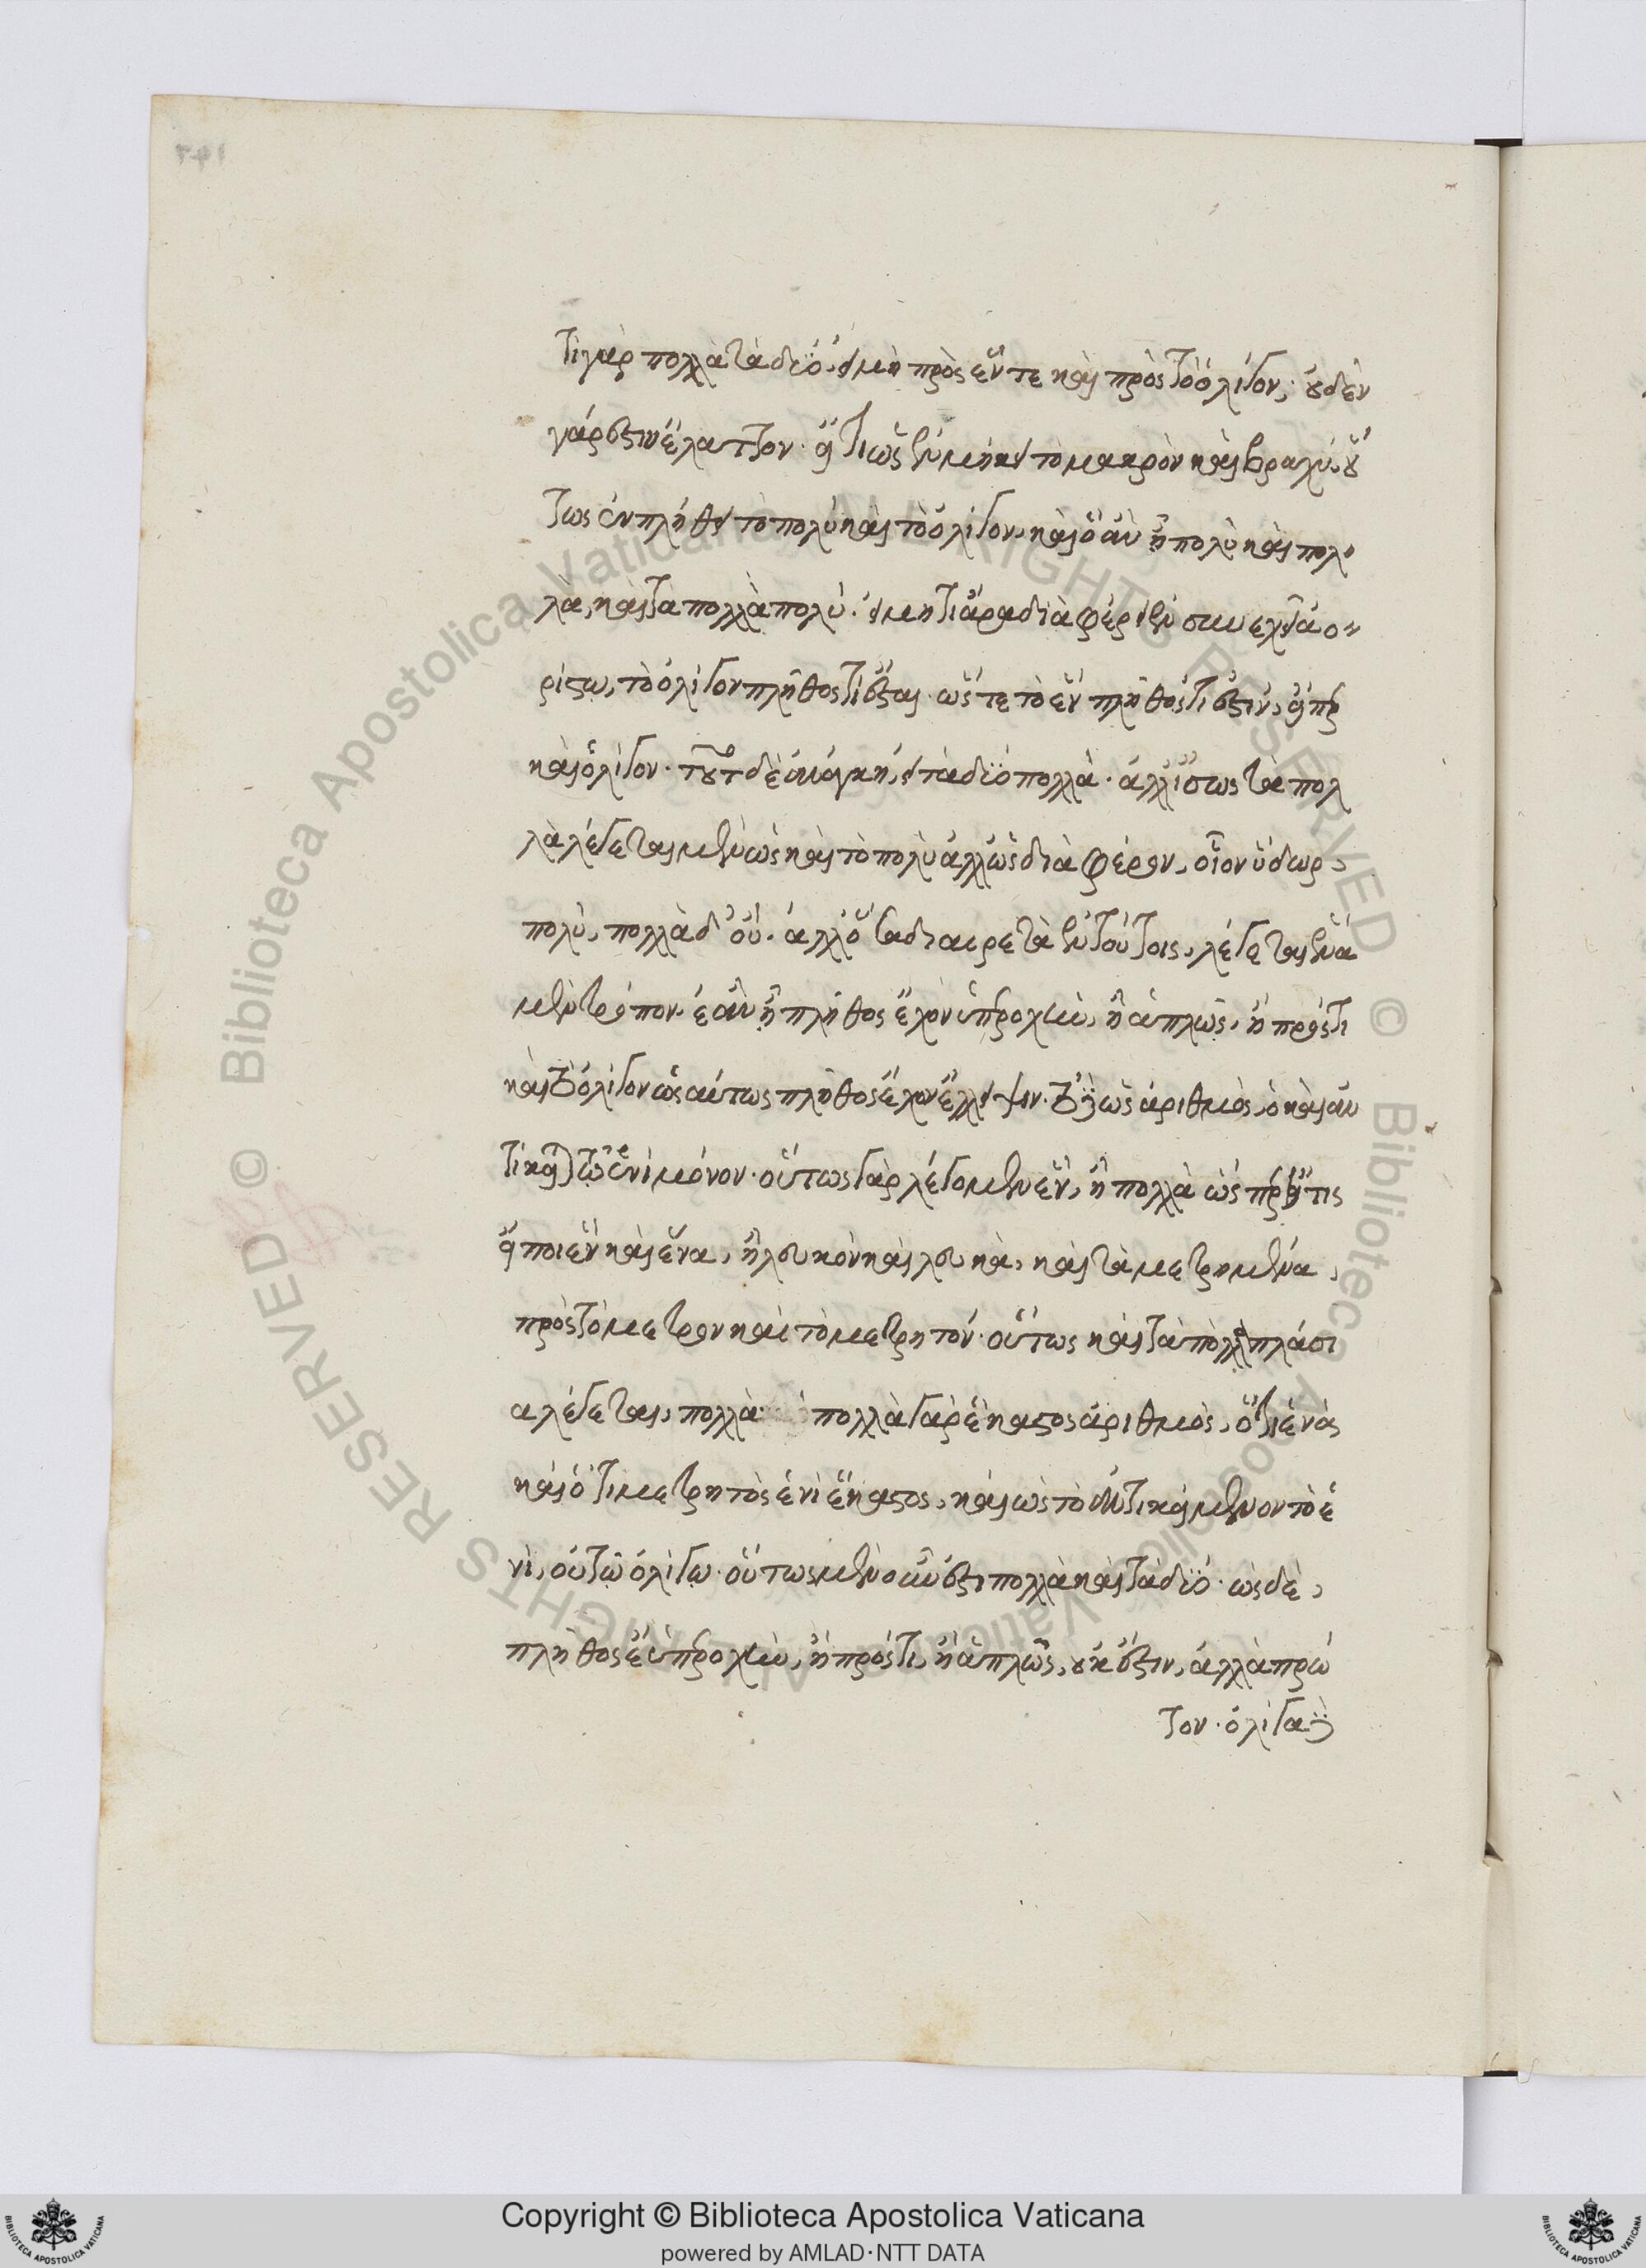 τί γὰρ πολλὰ τὰ δύο, εἰ μὴ πρὸς ἕν τε καὶ πρὸς τὸ ὀλίγον. οὐδὲν
γάρ ἐστιν ἔλαττον. ἔτι ὡς ἐν μήκει τὸ μακρὸν καὶ βραχὺ, οὕ
τως ἐν πλήθει τὸ πολὺ καὶ τὸ ὀλίγον, καὶ ὃ ἂν ᾖ πολὺ καὶ πολ
λὰ, καὶ τὰ πολλὰ πολύ. εἰ μή τι ἄρα διαφέρει ἐν συνεχεῖ ἀο
ρίστω, τὸ ὀλίγον πλῆθός τι ἔσται. ὥστε τὸ ἓν πλῆθός τι ἐστίν, εἴπερ
καὶ ὀλίγον. τοῦτο δὲ ἀνάγκη, εἰ τὰ δύο πολλά. ἀλλ' ἴσως τὰ πολ
λὰ λέγεται μὲν ὡς καὶ τὸ πολὺ ἀλλ' ὡς διαφέρον, οἷον ὕδωρ,
πολὺ, πολλὰ δ' οὔ. ἀλλ' ὅσα διαιρετὰ ἐν τούτοις, λέγεται ἕνα
μὲν τρόπον. ἐὰν ᾖ πλῆθος ἔχον ὑπεροχὴν, ἢ ἁπλῶς, ἢ πρός τι
καὶ τὸ ὀλίγον ὡσαύτως πλῆθος ἔχον ἔλλειψιν. τὸ δὲ ὡς ἀριθμὸς, ὃ καὶ ἀν
τίκειται τῷ ἑνὶ μόνον. οὕτως γὰρ λέγομεν ἓν, ἢ πολλὰ ὥσπερ εἴ τις
εἴποι ἓν καὶ ἕνα, ἢ λευκὸν καὶ λευκὰ, καὶ τὰ μετρημένα,
πρὸς τὸ μέτρον καὶ τὸ μετρητόν. οὕτως καὶ τὰ πολλαπλάσι
α λέγεται, πολλὰ πολλὰ γὰρ ἕκαστος ἀριθμὸς, ὅτι ἑνὰς
καὶ ὅτι μετρητὸς ἑνὶ ἕκαστος, καὶ ὡς τὸ ἀντικείμενον τὸ ἑ
νὶ, οὐ τῷ ὀλίγῳ. οὕτως μὲν οὖν ἐστι πολλὰ καὶ τὰ δύο. ὡς δὲ,
πλῆθος ἔχον ὑπεροχὴν, ἢ πρός τι, ἢ ἁπλῶς, οὐκ ἔστιν, ἀλλὰ πρῶ
τον. ὀλίγα δὲ
Copyright © Biblioteca Apostolica Vaticana
powered by AMLAD·NTT DATA